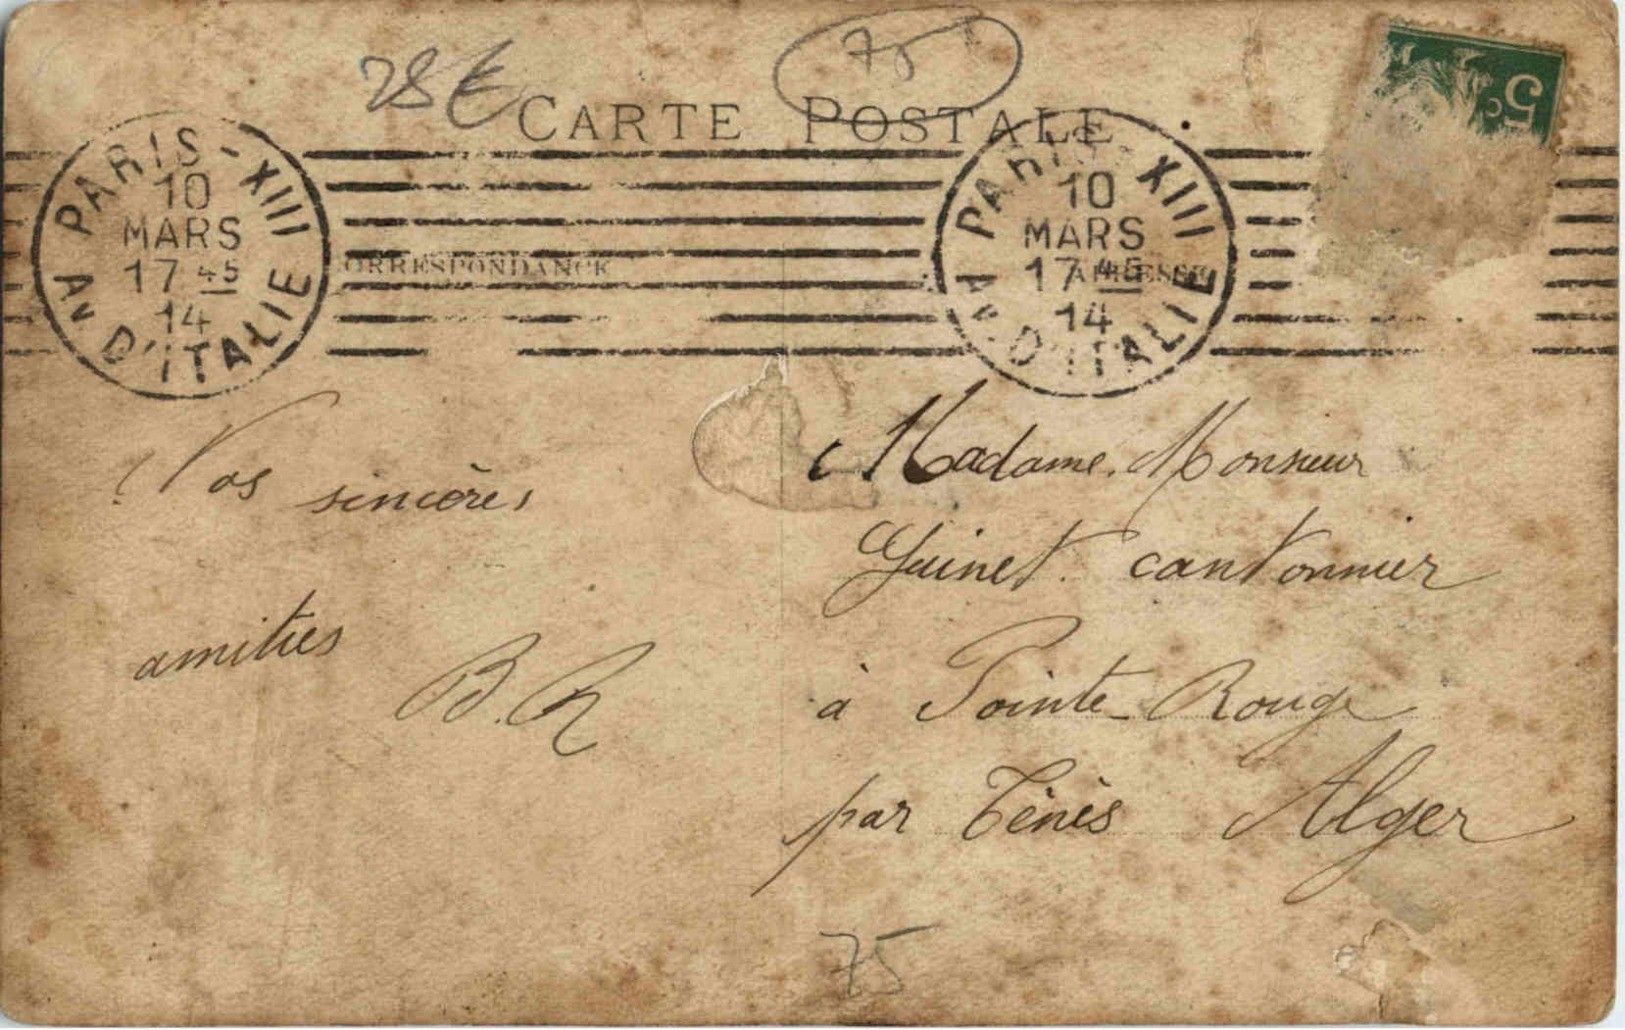 28€
75
CARTE POSTALE
PARIS-XIII
10
MARS
17 45
14
AV D'ITALIE
PARIS-XIII
10
MARS
17 45
14
AV D'ITALIE
5c
CORRESPONDANCE
ADRESSE
Vos
sincères
amitiés
B.R
Madame. Monsieur
Guinet. cantonnier
à Pointe-Rouge
par Ténès Alger
75